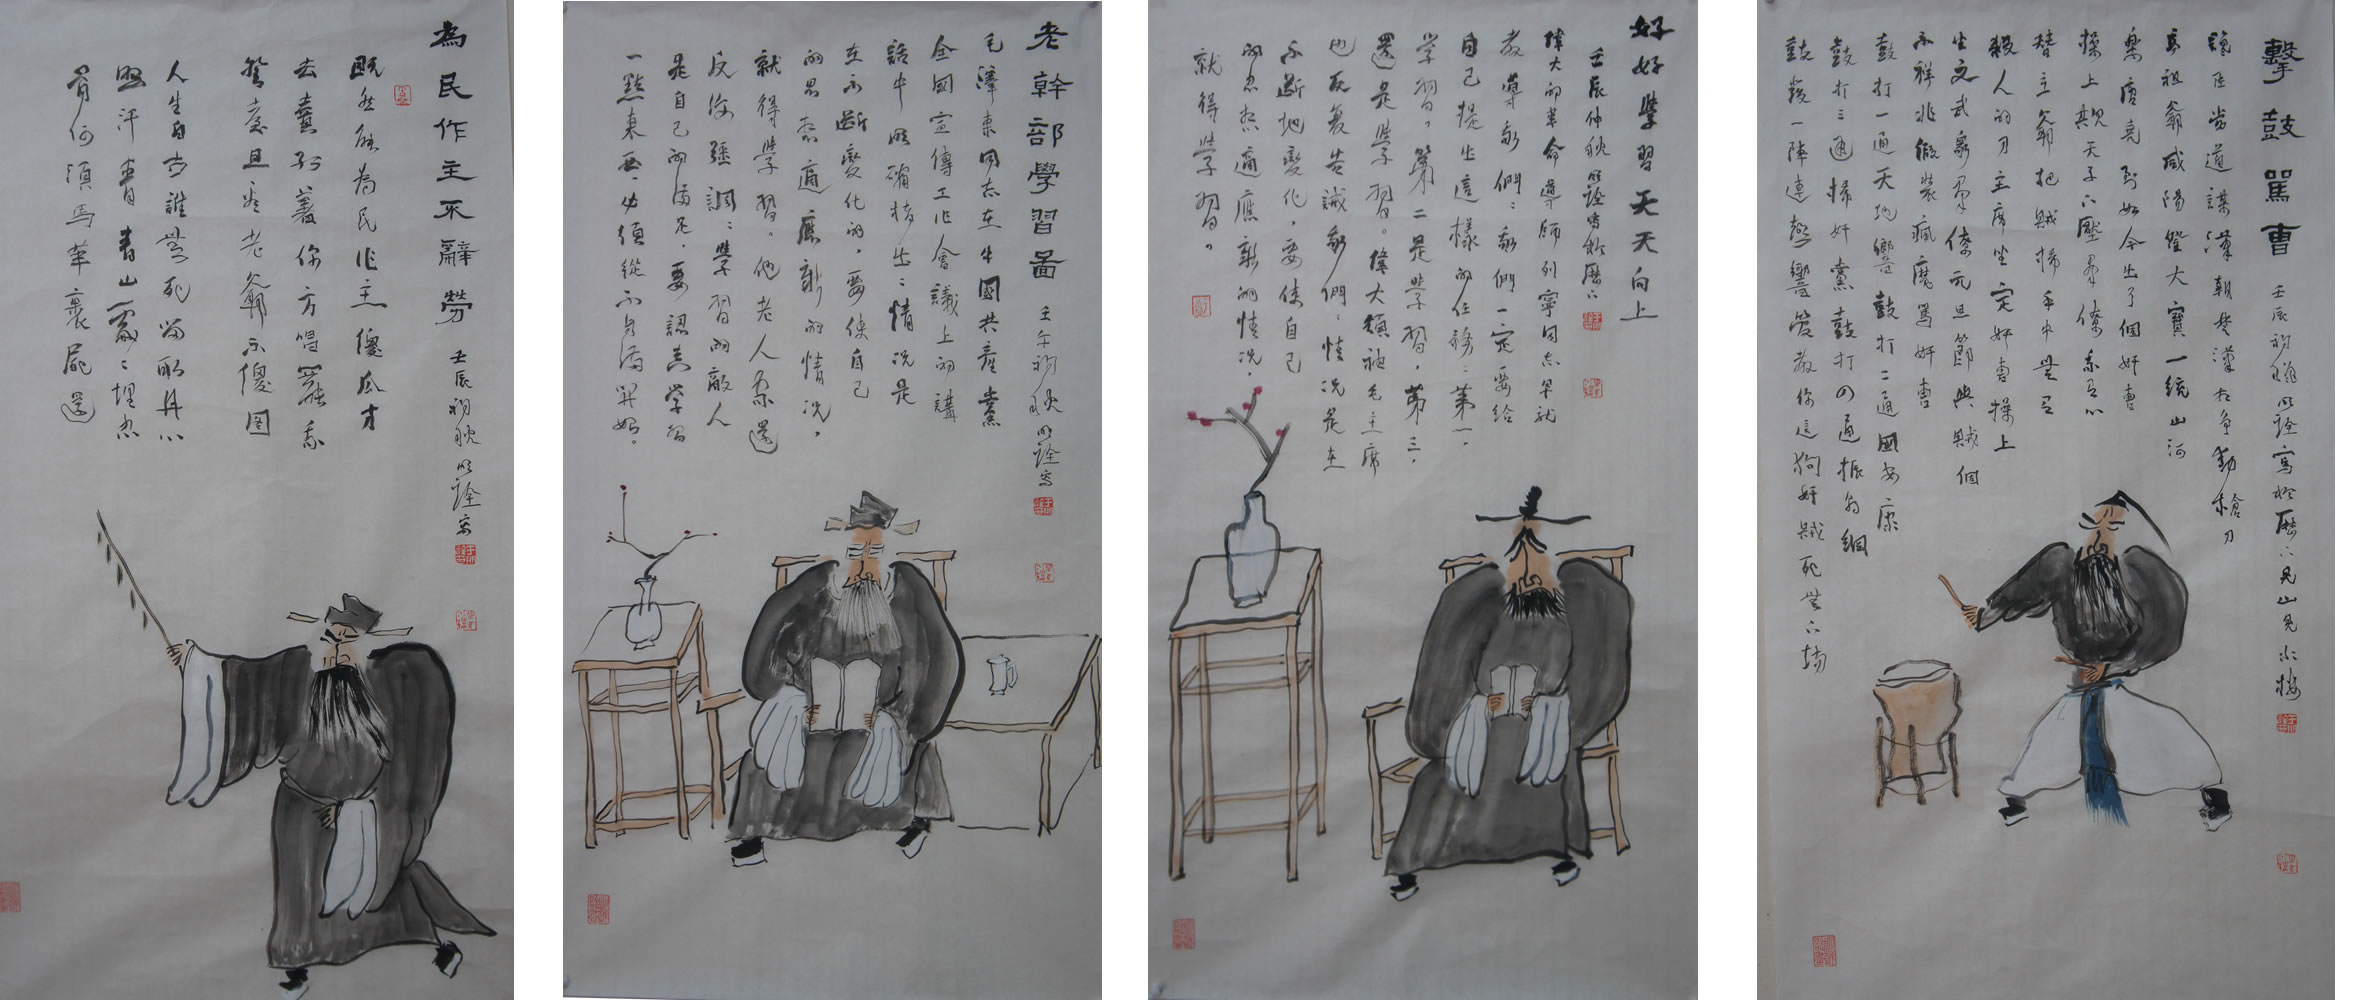 為民作主不辭勞 壬辰初秋明詮寫
既然能為民作主傻瓜才
去賣紅薯你方唱罷我
登臺且看老翁不傻圖
人生自古誰無死留取丹心
照汗青青山處處埋忠
骨何須馬革裹屍還
老幹部學習圖 壬午初秋明詮寫
毛澤東同志在中國共產黨
全國宣傳工作會議上的講
話中明確指出:情況是
在不斷變化的,要使自己
的思想適應新的情況,
就得學習。他老人家還
反復强調:學習的敵人
是自己的滿足,要認真学習
一點東西,必須從不自滿開始。
好好學習天天向上
壬辰仲秋明詮寫於歷下
偉大的革命導師列寧同志早就
教導我們:我們一定要給
自己提出這樣的任務:第一,
学習,第二是学習,第三,
還是學習。偉大領袖毛主席
也反复告誡我們:情況是在
不斷地變化,要使自己
的思想適應新的情况,
就得學習。
擊鼓罵曹 壬辰初秋明詮寫於歷下見山見水樓
讒臣當道謀漢朝楚漢相爭動槍刀
高祖爺咸陽登大寶一統山河
樂唐堯到如今出了個奸曹
操上欺天子下壓羣僚我有心
替主爺把賊掃手中無有
殺人的刀主席坐定奸曹操上
坐文武眾羣僚元旦節與賊個
不祥兆假裝瘋魔罵奸曹
鼓打一通天地響鼓打二通國安康
鼓打三通掃奸黨鼓打四通振朝綱
鼓發一陣連聲響管教你這狗奸賊死無下場